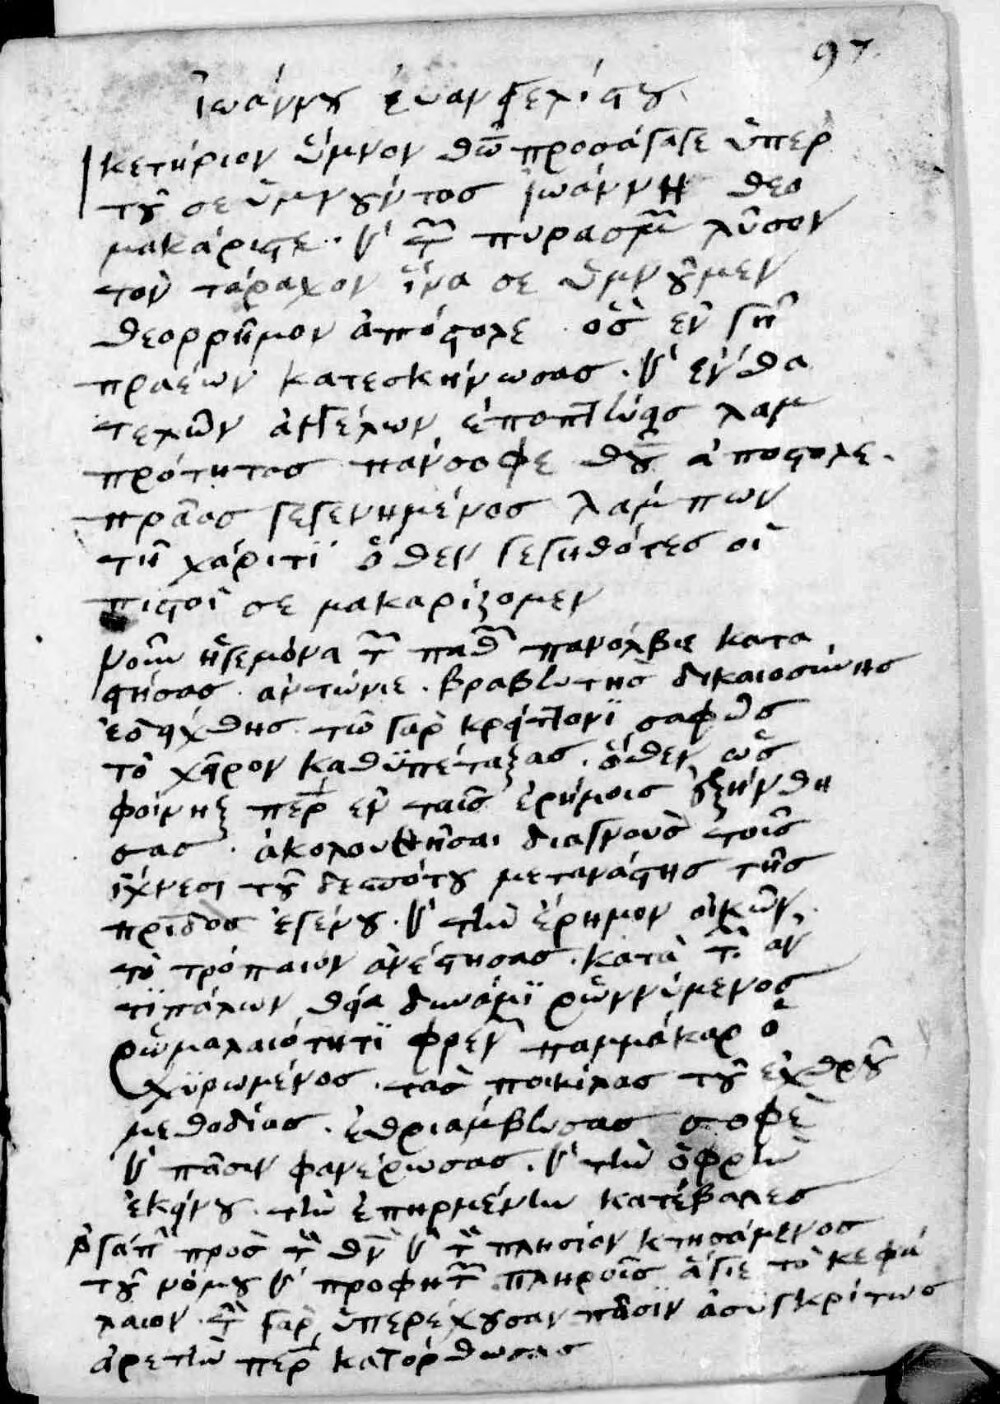 97
Ἰωάννου εὐαγγελίστου
Ἱκετήριον ὕμνον θῶ προσάγαγε ὑπὲρ
τοῦ σε ὑμνοῦντος Ἰωάννη θεο
μακάριστε. κ τῶν πυρασμῶν λῦσον
τὸν τάραχον ἵνα σε ὑμνοῦμεν
θεορρῆμον ἀπόστολε. ὃς ἐν γῆ
πραέων κατεσκήνωσας. κ ἔνθα
τελῶν ἀγγέλων ἐποπτεύεις λαμ
πρότητας πάνσοφε θυ ἀπόστολε.
πρᾶος γεγενημένος λάμπων
τῆ χάριτι ὅθεν γεγηθότες οἱ
πιστοὶ σε μακαρίζομεν
Νοῦν ἡγεμόνα τῶν παθῶν πανόλβιε κατα
στήσας. ἀντώνιε. βραβευτὴς δικαιοσύνης
ἐδείχθης. τῶ γὰρ κρείττονι σαφῶς
τὸ χεῖρον καθυπέταξας. ὅθεν ὡς
φοίνηξ περ ἐν ταῖς ἐρήμοις ἐξήνθη
σας. ἀκολουθῆσαι διαγνοὺς τοῖς
ἴχνεσι τοῦ δεσπότου μετανάστης τῆς
πρῖδος ἐγένου. κ τὴν ἔρημον οἰκῶν
τὸ τρόπαιον ἀνέστησας. κατὰ τῶν ἀν
τιπάλων θεία δυνάμει ῥωννύμενος
ῥωμαλαιότητι φρενῶν παμμάκαρ ὀ
χυρωμένος. τὰς ποικίλας τοῦ ἐχθροῦ
μεθοδίας. ἐθριάμβευσας σοφὲ
κ πᾶσιν φανέρωσας. κ τὴν ὀφρῦν
ἐκείνου τὴν ἐπηρμένην κατέβαλες
ἀγάπην πρὸς τὸν θν κ τὸν πλησίον κτησάμενος
τοῦ νόμου κ προφητῶν πληροῖς ἅγιε τὸ κεφά
λαιον. τὴν γὰρ ὑπερέχουσαν πᾶσιν ἀσυγκρίτως
ἀρετὴν περ κατόρθωσας